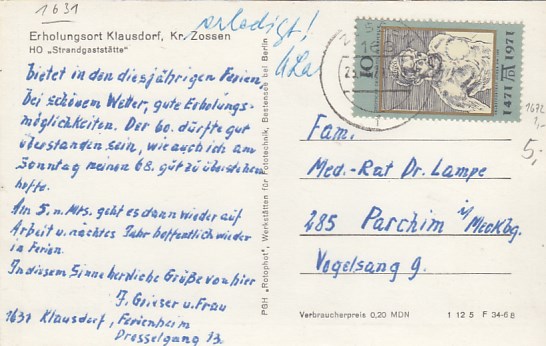 1631
erledigt!
Erholungsort Klausdorf, Kr. Zossen
HO „Strandgaststätte“
bietet in den diesjährigen Ferien
bei schönem Wetter, gute Erholungs-
möglichkeiten. Der 60. dürfte gut
überstanden sein, wie auch ich am
Sonntag meinen 68. gut zu überstehen
hoffe.
Am 5. n. Mts. geht es dann wieder auf
Arbeit u. nächstes Jahr hoffentlich wieder
in Ferien.
In diesem Sinne herzliche Grüße von hier
J. Grieser u. Frau
1631 Klausdorf, Ferienheim
Drosselgang 13.
PGH „Rotophot“, Werkstätten für Fototechnik, Bestensee bei Berlin
10
1471
1971
1672
1,-
5,-
Fam.
Med.-Rat Dr. Lampe
285 Parchim i/Meckbg.
Vogelsang 9.
Verbraucherpreis 0,20 MDN
1 12 5 F 34-68